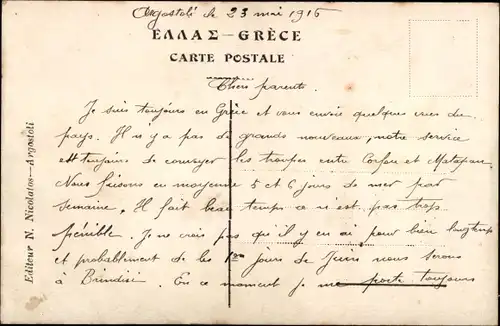 Argostoli le 23 mai 1916
ΕΛΛΑΣ - GRÈCE
CARTE POSTALE
Chers parents.
Je suis toujours en Grèce et vous envoie quelques vues du
pays. Il n'y a pas de grands nouveaux, notre service
est toujours de convoyer les troupes entre Corfou et Matapan.
Nous faisons en moyenne 5 et 6 jours de mer par
semaine. Il fait beau temps ce n'est pas trop
pénible. Je ne crois pas qu'il y en ai pour bien longtemps
et probablement de les 1ers jours de Juin nous serons
à Brindisi. En ce moment je me porte toujours
Editeur N. Nicolatos—Argostoli